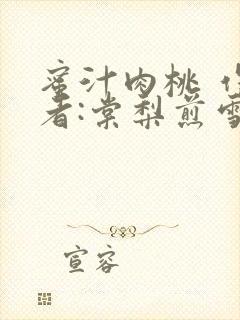 蜜汁肉桃
者:棠梨煎雪
宣容